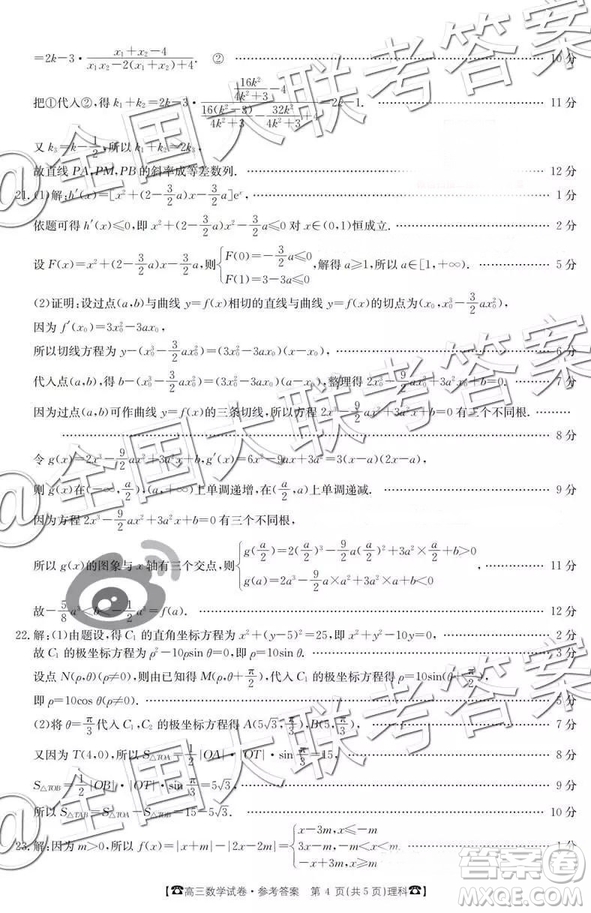 =2k-3·\frac{x₁+x₂-4}{x₁x₂-2(x₁+x₂)+4}. ② 10分
把①代入②,得 k₁+k₂=2k-3·
\frac{\frac{16k²}{4k²+3}-4} =2k-1. 11分
又 k₃=k-\frac{1}{2},所以 k₁+k₂=2k₃,
故直线 PA,PM,PB 的斜率成等差数列. 12分
21.(1)解:h′(x)=[x²+(2-\frac{3}{2}a)x-\frac{3}{2}a]eˣ, 1分
依题可得 h′(x)≤0,即 x²+(2-\frac{3}{2}a)x-\frac{3}{2}a≤0 对 x∈(0,1)恒成立. 2分
设 F(x)=x²+(2-\frac{3}{2}a)x-\frac{3}{2}a,则{F(0)=-\frac{3}{2}a≤0
F(1)=3-3a≤0,解得 a≥1,所以 a∈[1,+∞). 5分
(2)证明:设过点(a,b)与曲线 y=f(x)相切的直线与曲线 y=f(x)的切点为(x₀,x₀³-\frac{3}{2}ax₀²),
因为 f′(x₀)=3x₀²-3ax₀,
所以切线方程为 y-(x₀³-\frac{3}{2}ax₀²)=(3x₀²-3ax₀)(x-x₀), 6分
代入点(a,b),得 b-(x₀³-\frac{3}{2}ax₀²)=(3x₀²-3ax₀)(a-x₀),整理得 2x₀³-\frac{9}{2}ax₀²+3a²x₀+b=0. 7分
因为过点(a,b)可作曲线 y=f(x)的三条切线,所以方程 2x³-\frac{9}{2}ax²+3a²x+b=0 有三个不同根.
8分
令 g(x)=2x³-\frac{9}{2}ax²+3a²x+b,g′(x)=6x²-9ax+3a²=3(x-a)(2x-a),
则 g(x)在(-∞,\frac{a}{2}),(a,+∞)上单调递增,在(\frac{a}{2},a)上单调递减. 9分
因为方程 2x³-\frac{9}{2}ax²+3a²x+b=0 有三个不同根,
所以 g(x)的图象与 x 轴有三个交点,则{g(\frac{a}{2})=2(\frac{a}{2})³-\frac{9}{2}a(\frac{a}{2})²+3a²×\frac{a}{2}+b>0
g(a)=2a³-\frac{9}{2}a×a²+3a²×a+b<0, 11分
故-\frac{5}{8}a³<b<-\frac{1}{2}a³=f(a). 12分
22.解:(1)由题设,得 C₁ 的直角坐标方程为 x²+(y-5)²=25,即 x²+y²-10y=0, 2分
故 C₁ 的极坐标方程为 ρ²-10ρsinθ=0,即 ρ=10sinθ. 3分
设点 N(ρ,θ)(ρ≠0),则由已知得 M(ρ,θ+\frac{π}{2}),代入 C₁ 的极坐标方程得 ρ=10sin(θ+\frac{π}{2}),
即 ρ=10cosθ(ρ≠0). 5分
(2)将 θ=\frac{π}{3}代入 C₁,C₂ 的极坐标方程得 A(5√3,\frac{π}{3}),B(5,\frac{π}{3}), 7分
又因为 T(4,0),所以 S△TOA=\frac{1}{2}|OA|·|OT|·sin\frac{π}{3}=15, 8分
S△TOB=\frac{1}{2}|OB|·|OT|·sin\frac{π}{3}=5√3, 9分
所以 S△TAB=S△TOA-S△TOB=15-5√3. 10分
23.解:因为 m>0,所以 f(x)=|x+m|-|2x-2m|={x-3m,x≤-m
3x-m,-m<x<m
-x+3m,x≥m
☎高三数学试卷·参考答案 第 4 页(共 5 页)理科☎
@全国大联考答案
答案圈